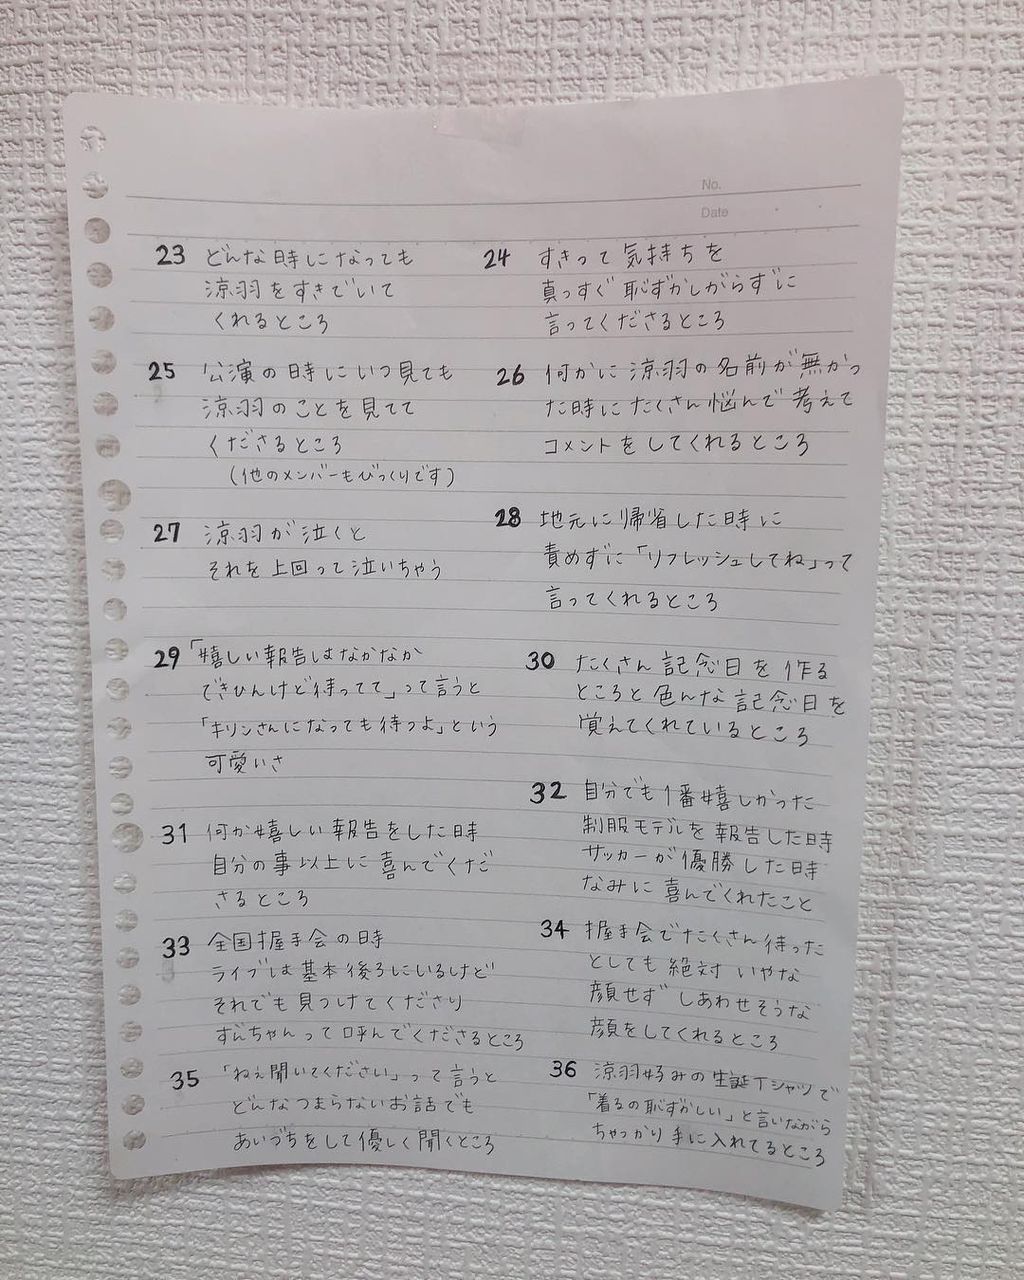 No.
Date
23 どんな時になっても
涼羽をすきでいて
くれるところ
24 すきって気持ちを
真っすぐ恥ずかしがらずに
言ってくださるところ
25 公演の時にいつ見ても
涼羽のことを見てて
くださるところ
(他のメンバーもびっくりです)
26 何かに涼羽の名前が無かっ
た時にたくさん悩んで考えて
コメントをしてくれるところ
27 涼羽が泣くと
それを上回って泣いちゃう
28 地元に帰省した時に
責めずに「リフレッシュしてね」って
言ってくれるところ
29「嬉しい報告はなかなか
できひんけど待ってて」って言うと
「キリンさんになっても待つよ」という
可愛いさ
30 たくさん記念日を作る
ところと色んな記念日を
覚えてくれているところ
31 何か嬉しい報告をした時
自分の事以上に喜んでくだ
さるところ
32 自分でも1番嬉しかった
制服モデルを報告した時
サッカーが優勝した時
なみに喜んでくれたこと
33 全国握手会の時
ライブは基本後ろにいるけど
それでも見つけてくださり
ずんちゃんって呼んでくださるところ
34 握手会でたくさん待った
としても絶対いやな
顔せずしあわせそうな
顔をしてくれるところ
35 「ねぇ聞いてください」って言うと
どんなつまらないお話でも
あいづちをして優しく聞くところ
36 涼羽好みの生誕Tシャツで
「着るの恥ずかしい」と言いながら
ちゃっかり手に入れてるところ